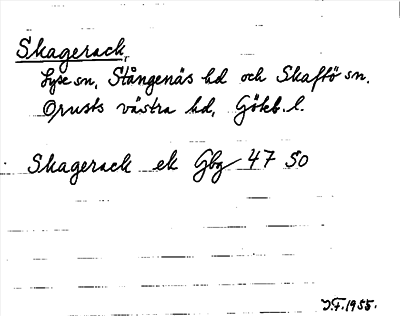 Skagerack,
Lyse sn, Stångenäs hd och Skaftö sn.
Orusts västra hd, Göteb. l.
Skagerack ek Gbg 47 SO
J.F. 1955.